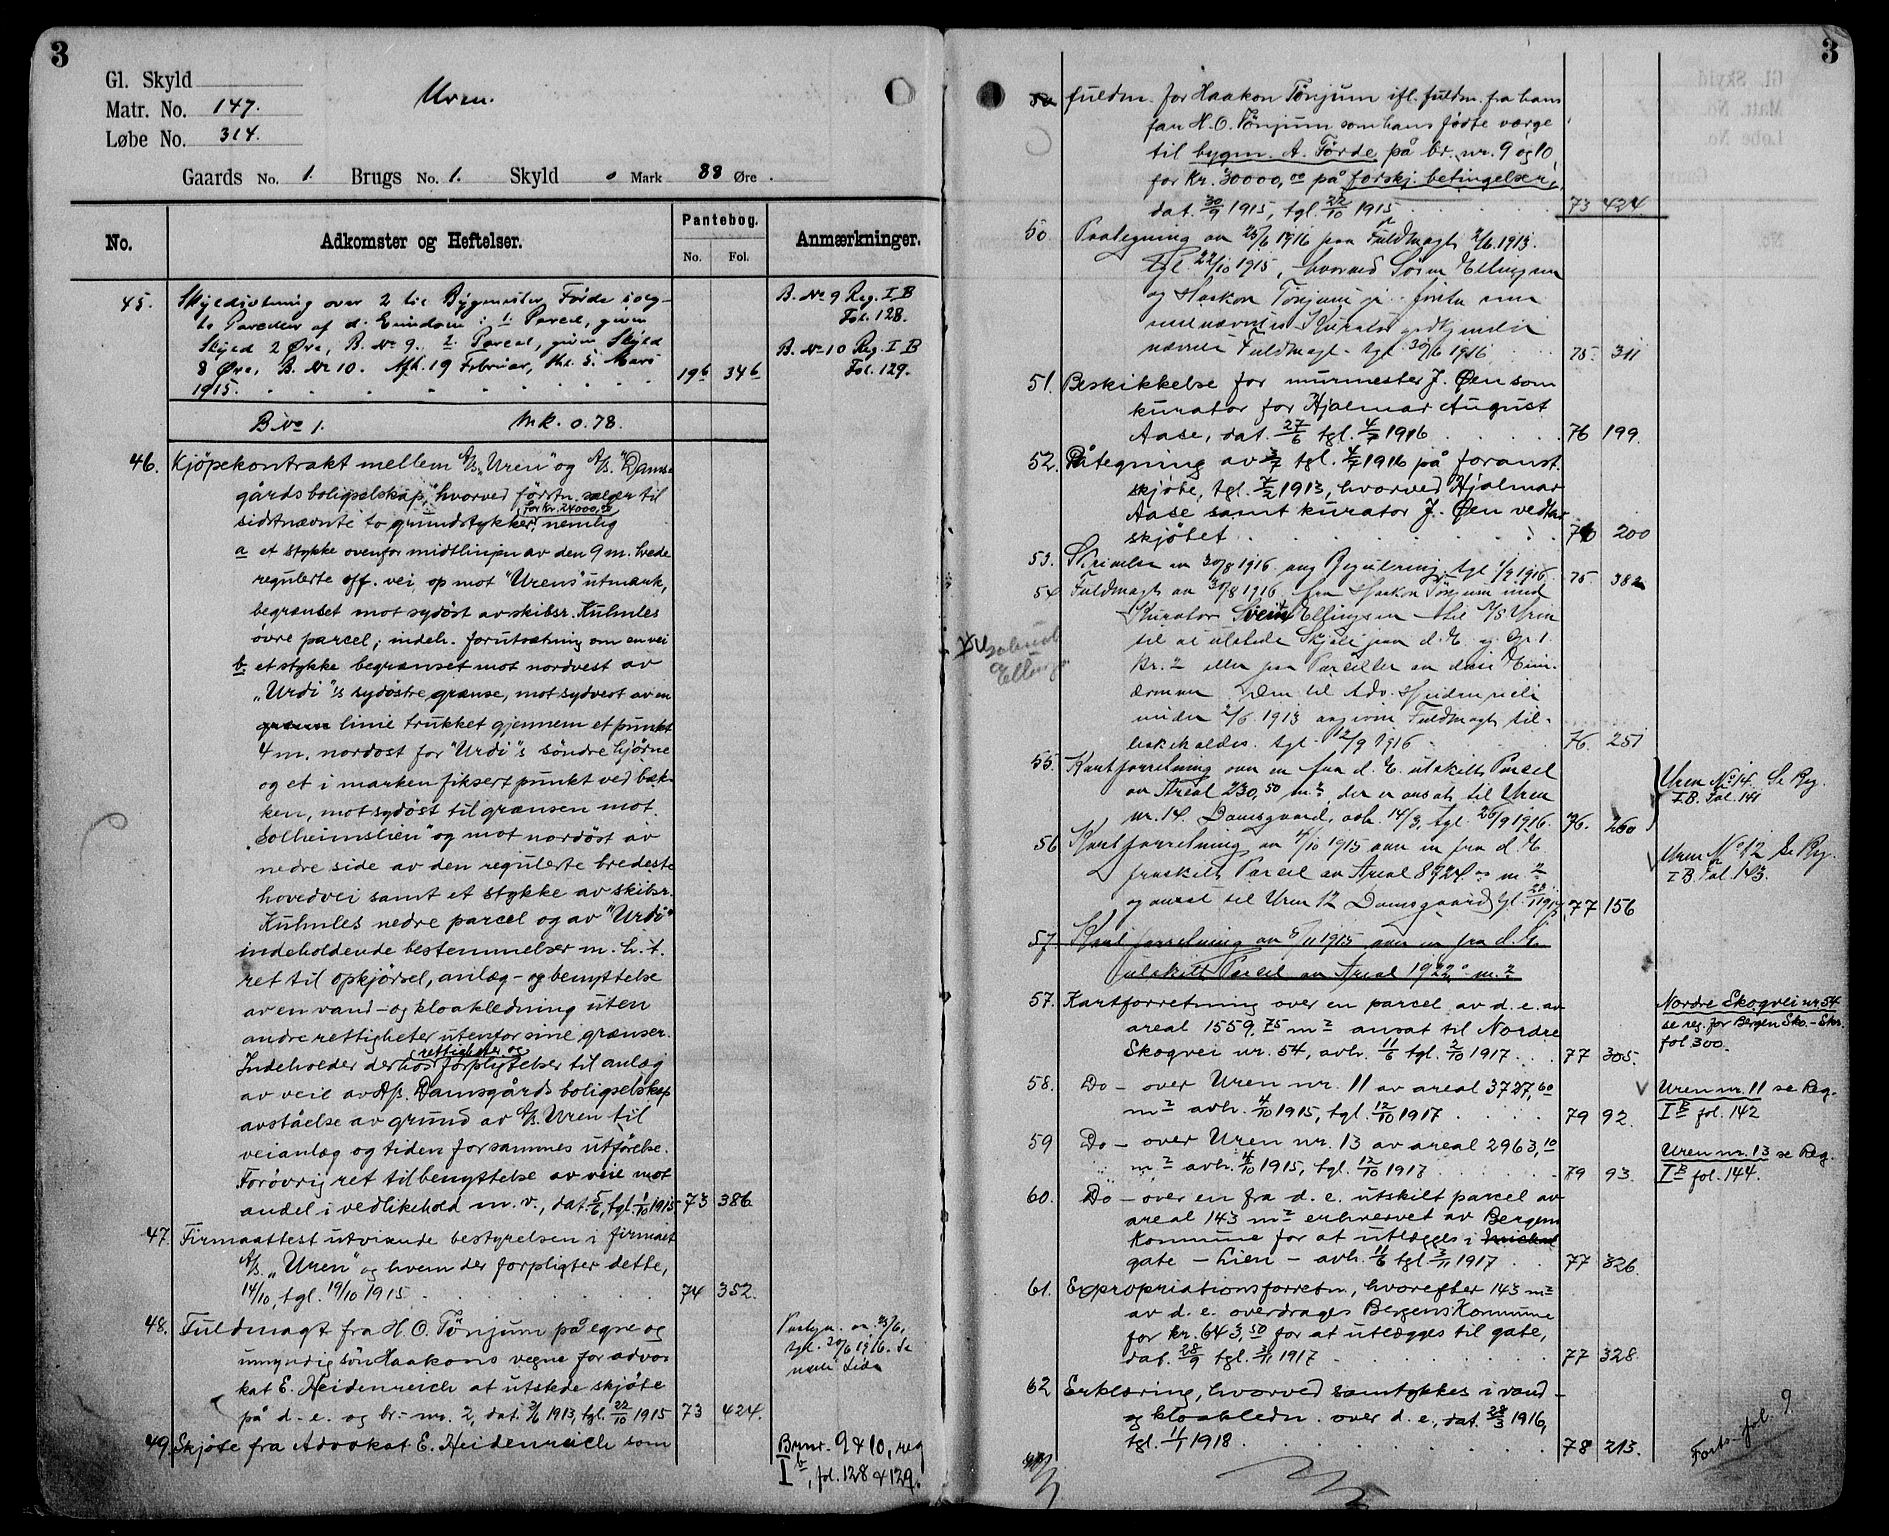 3
Gl. Skyld
Matr. No. 147.
Løbe No. 314.
Uren.
Gaards No. 1. Brugs No. 1. Skyld 0 Mark 88 Øre.
No. Adkomster og Heftelser. Pantebog. No. Fol. Anmærkninger.
45. Skyldsetning over 2 til Bygmester Førde solg-
te Parceller af d. Eiendom: 1. Parcel, given
Skyld 2 Øre, B. No 9., 2. Parcel, given Skyld
8 Øre, B. No 10. Afh. 19 Februar, thl. 5. Mars
1915. 19b 346
B. No 9 Reg. I B
Fol. 128.
B. No 10 Reg. I B
Fol. 129.
B No 1. Mk. 0.78.
46. Kjöpekontrakt mellem A/S „Uren" og A/S. "Dams-
gårds boligselskap," hvorved förstn. sælger til
sidstnævnte to grundstykker for Kr. 24000,00 nemlig
a et stykke ovenfor midtlinjen av den 9 m. brede
regulerte off. vei, op mot "Urens" utmark,
begrænset mot sydöst av skibsr. Kuhnles
övre parcel; indeh. forutsætning om en vei
b et stykke begrænset mot nordvest av
„Urdi"s sydöstre grænse, mot sydvest av en
linie trukket gjennem et punkt
4 m. nordost for "Urdi"s söndre hjörne
og et i marken fiksert punkt ved bæk-
ken, mot sydöst til grænsen mot
„Solheimslien" og mot nordöst av
nedre side av den regulerte bredeste
hovedvei samt et stykke av skibsr.
Kuhnles nedre parcel og av "Urdi"
indeholdende bestemmelser m. h. t.
ret til opkjörsel, anlæg- og benyttelse
av en vand- og kloakledning uten
andre rettigheter utenfor sine grænser.
Indeholder derhos rettigheter og forpligtelser til anlæg
av veie av A/S. Damsgårds boligselskap
avståelse av grund av A/S. Uren til
veianlæg og tiden for sammes utförelse.
Forövrig ret til benyttelse av veie mot
andel i vedlikehold m. v., dat. 5/6, tgl. 1/10 1915 73 386
47. Firmaattest utvisende bestyrelsen i firmaet
A/S. „Uren" og hvem der forpligter dette,
14/10, tgl. 19/10 1915. 74 352.
48. Fuldmagt fra H. O. Tönjum på egne og
umyndig sön Haakons vegne for advo-
kat E. Heidenreich at utstede skjöte
på d. e. og br. nr. 2, dat. 2/6 1913, tgl. 22/10 1915 73 424.
Paategn. av 23/6,
tgl. 30/6 1916. Se
næste Side
49. Skjöte fra Advokat E. Heidenreich som
Brnr. 9 & 10, reg
I b, fol. 128 & 129.
3
fuldm. for Haakon Tönjum ifl. fuldm. fra hans
far H. O. Tönjum som hans födte værge
til bygm. A. Förde på br. nr. 9 og 10
for Kr. 30000,00 på forskj. betingelser,
dat. 30/9 1915, tgl. 22/10 1915 73 424
50. Paategning av 23/6 1916 paa Fuldmagt 2/6 1913.
tgl. 22/10 1915, hvorved Sören Ellingsen
og Haakon Tönjum
Kurator godkjender
nævnte Fuldmagt. tgl. 30/6 1916 75 311
51. Beskikkelse for murmester J. Øen som
kurator for Hjalmar August
Aase, dat. 27/6 tgl. 4/7 1916. 76 199.
52. Påtegning av 3/7 tgl. 4/7 1916 på foranst.
skjöte, tgl. 7/2 1913, hvorved Hjalmar
Aase samt kurator J. Øen vedtar
skjötet. 76 200
53. Skrivelse av 30/8 1916 ang Regulering, tgl. 1/9 1916. 75. 382
54 Fuldmagt av 30/8 1916 fra Haakon Tönjum med
Kurator Ellingsen til A/S Uren
til at utstede Skjöte paa d. E. og Gr. 1.
Br. 2 eller paa Parceller av disse Eien-
domme. Den til Adv. Heidenreich
under 2/6 1913 angivne Fuldmagt til-
bakekaldes. tgl. 12/9 1916 76. 251
Ellings
55. Kartforretning over en fra d. E. utskilt Parcel
av Areal 230,50 m2 der er ansat til Uren
nr. 14. Damsgaard, avh. 14/3, tgl. 26/9 1916. 76. 260
Uren No 14. Se Reg.
I.B. Fol. 141
56 Kartforretning av 4/10 1915 over en fra d. E.
fraskilt Parcel av Areal 8924. m2
og ansat til Uren 12 Damsgaard, tgl. 77 156
Uren No 12 Se Reg.
I B. Fol. 143.
57 Kartforretning av 5/11 1915 over en fra d. E.
utskilt Parcel av Areal 1922. m2
57. Kartforretning over en parcel av d. e. av
areal 1559,75 m2 ansat til Nordre
Skogvei nr. 54, avh. 11/6 tgl. 2/10 1917. 77 305.
Nordre Skogvei nr. 54
se reg. for Bergen Sko.-Skr.
fol 300.
58. Do - over Uren nr. 11 av areal 3727,60
m2 avh. 4/10 1915, tgl. 12/10 1917 79 92.
Uren nr. 11 se Reg.
I B fol. 142
59 Do - over Uren nr. 13 av areal 2963,10
m2 avh. 4/10 1915, tgl. 12/10 1917 79 93.
Uren nr. 13 se Reg.
I B fol. 144.
60. Do - over en fra d. e. utskilt parcel av
areal 143 m2 erhvervet av Bergens
Kommune for at utlægges i
gate - Lien - avh. 11/6 tgl. 3/11 1917 77 326.
61. Expropriationsforretn., hvorefter 143 m2
av d. e. overdrages Bergens Kommune
for kr. 643,50 for at utlægges til gate,
dat. 28/9 tgl. 3/11 1917 77 328.
62 Erklæring, hvorved samtykkes i vand-
og kloakledn. over d. e., dat. 28/3 1916,
tgl. 11/1 1918. 78 213.
Forts. fol. 9.